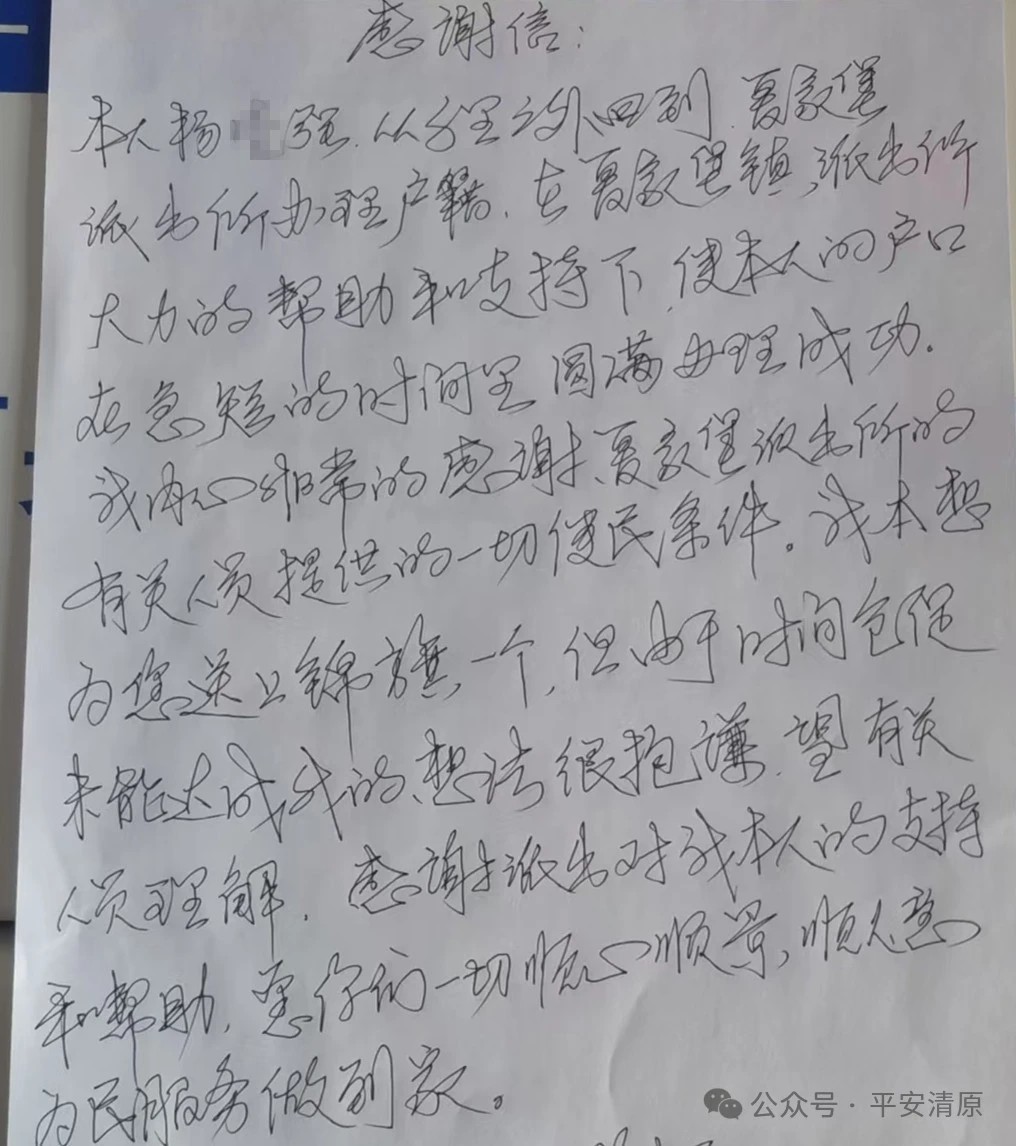 感谢信:
本人杨 强.从千里之外回到.夏家堡
派出所办理户籍.在夏家堡镇,派出所
大力的帮助和支持下,使本人的户口
在急短的时间里圆满办理成功.
我内心非常的感谢、夏家堡派出所的
有关人员提供的一切便民条件。我本想
为您送上锦旗一个,但由于时间仓促
未能达成我的想法很抱谦.望有关
人员理解.感谢派出对我本人的支持
和帮助.愿你们一切顺心顺景,顺人意
为民服务做到家。
公众号·平安清原